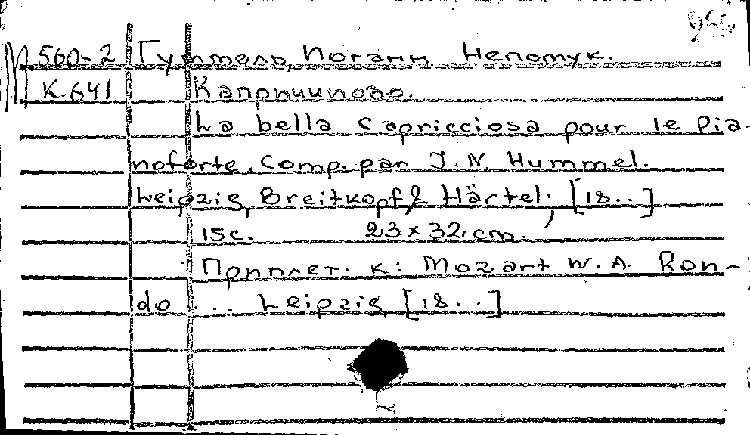 560-2 Гуммель, Иоганн Непомук.
К-641 Каприччиозо.
La bella Capricciosa pour le pia-
noforte. Comp. par J. N. Hummel.
Leipzig, Breitkopf & Härtel, [18..]
15 с. 23 x 32 cm.
Приплет. к: Mozart W. A. Ron-
do ... Leipzig [18..]